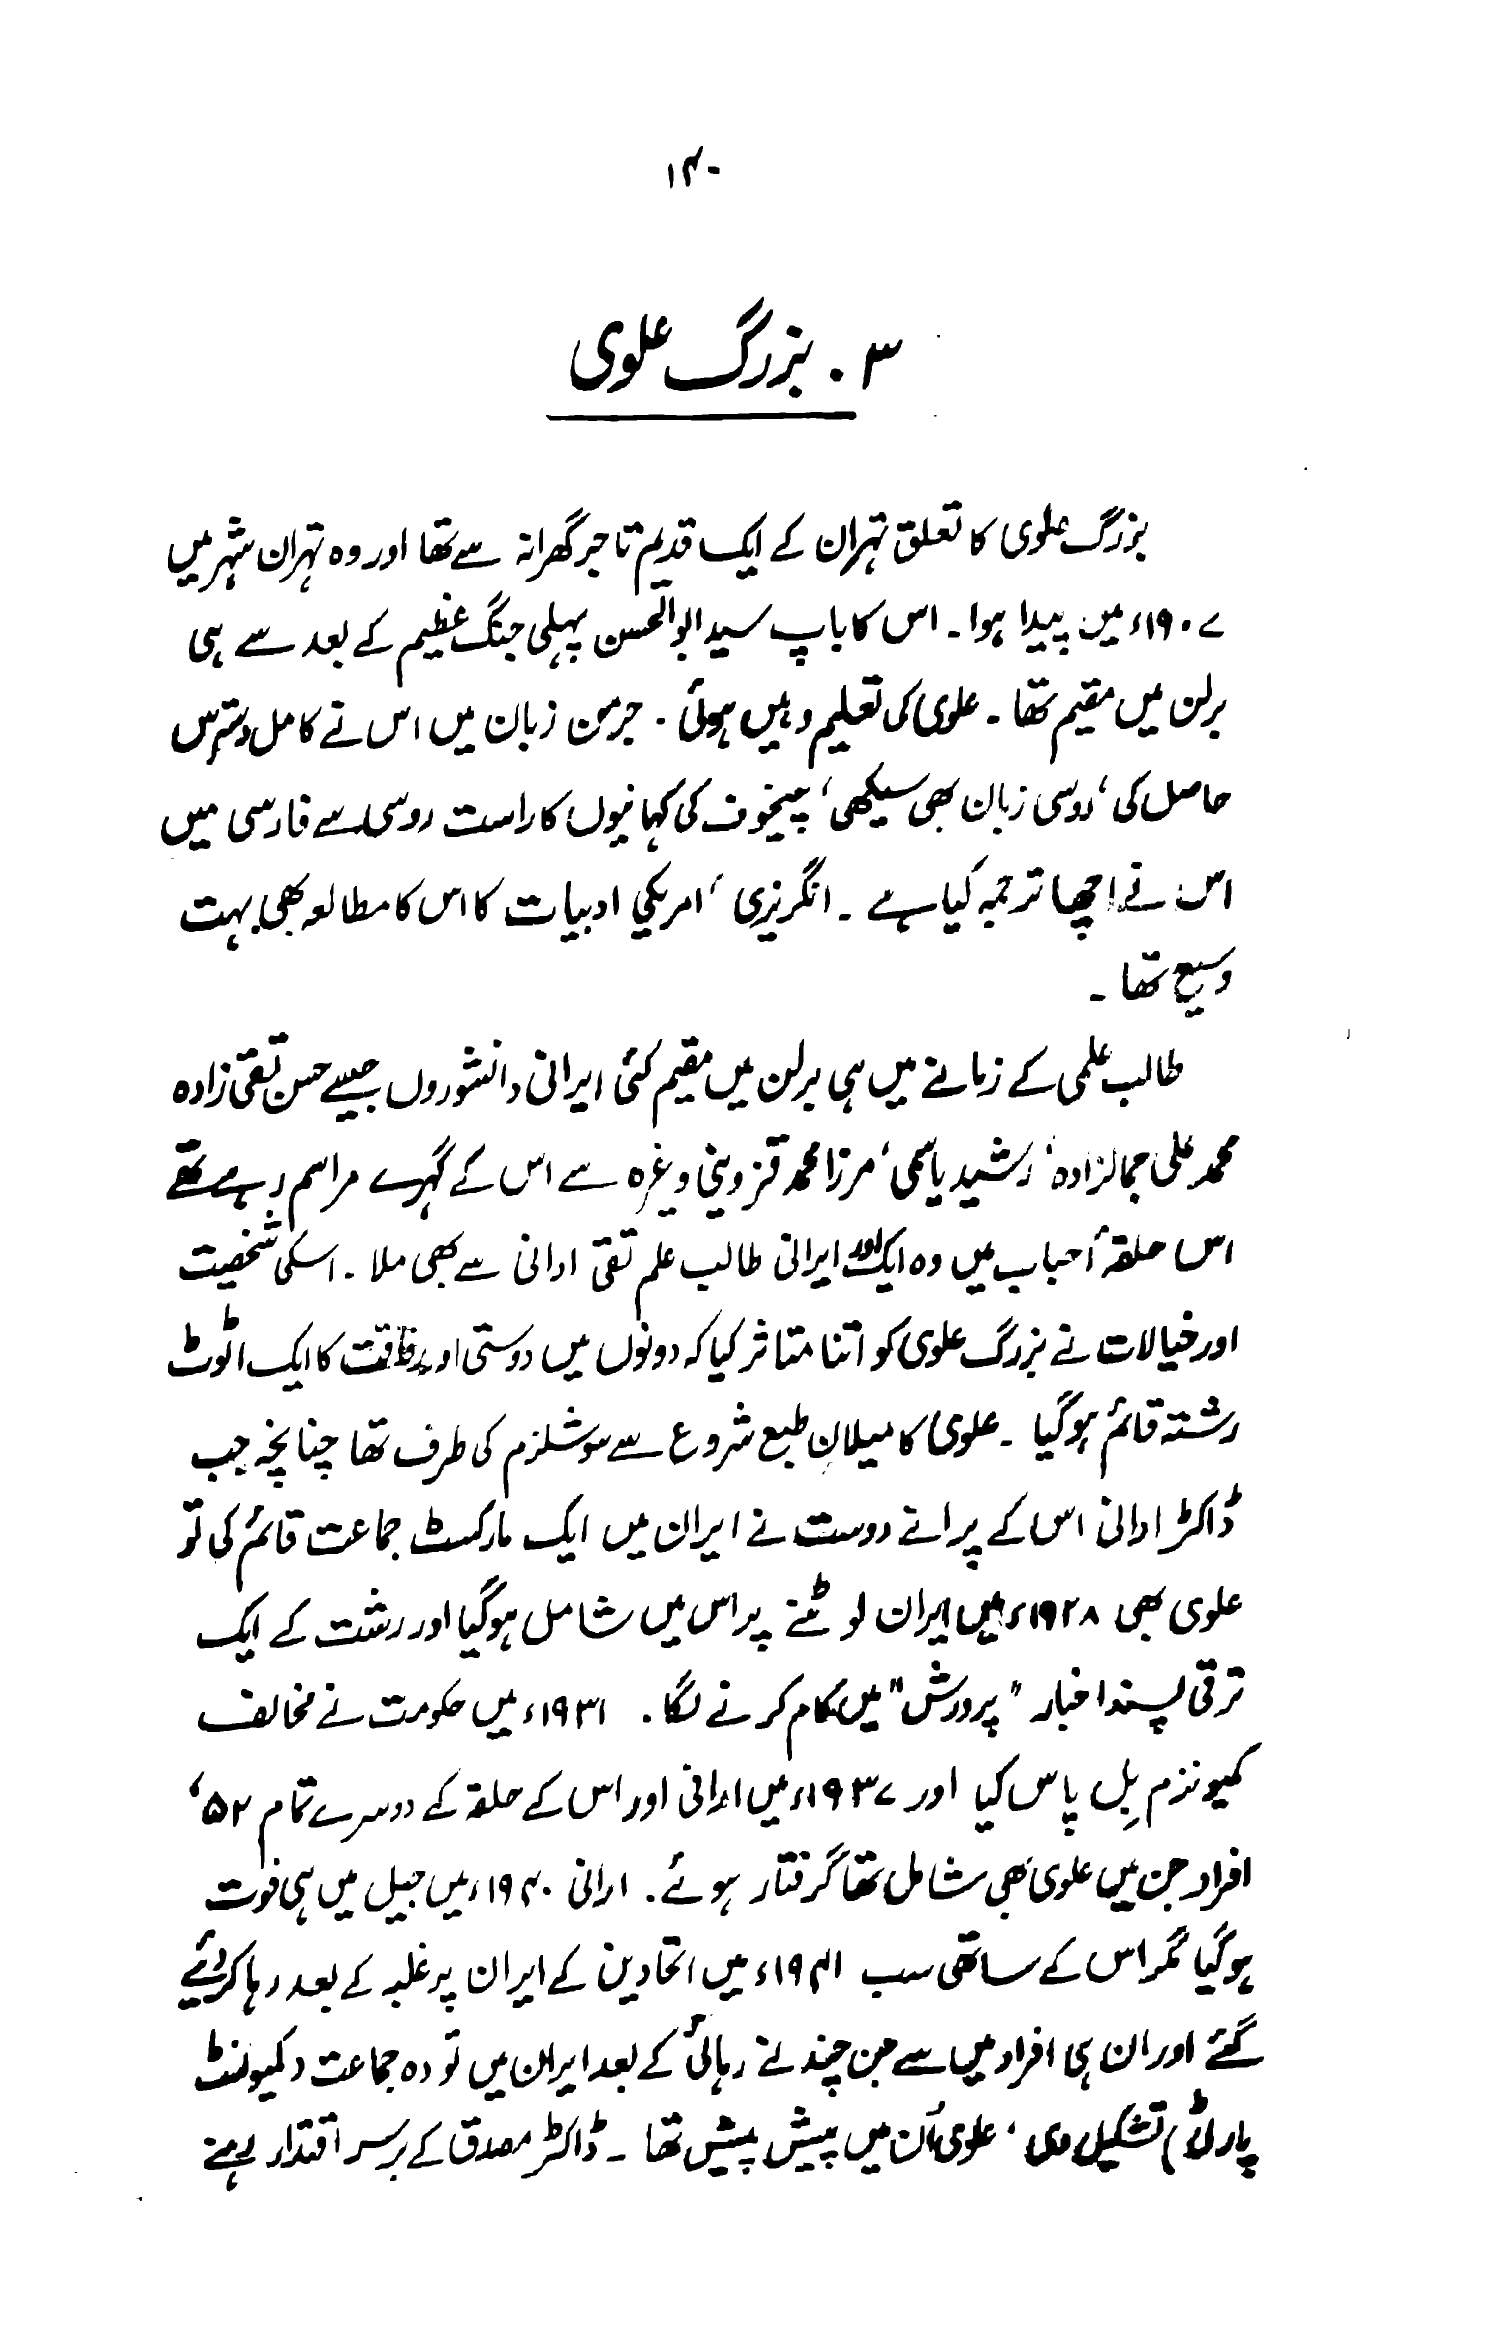 ۱۴۰
۳ . بزرگ علوی
بزرگ علوی کا تعلق تہران کے ایک قدیم تاجر گھرانہ سے تھا اور وہ تہران شہر میں
۱۹۰۷ء میں پیدا ہوا ۔ اس کا باپ سید ابوالحسن پہلی جنگ عظیم کے بعد سے ہی
برلن میں مقیم تھا ۔ علوی کی تعلیم وہیں ہوئی . جرمن زبان میں اس نے کامل دسترس
حاصل کی ، روسی زبان بھی سیکھی ، چیخوف کی کہانیوں کا راست روسی سے فارسی میں
اس نے اچھا ترجمہ کیا ہے ۔ انگریزی ، امریکی ادبیات کا اس کا مطالعہ بھی بہت
وسیع تھا ۔
طالب علمی کے زمانے میں ہی برلن میں مقیم کئی ایرانی دانشوروں جیسے حسن تقی زادہ
محمد علی جمالزادہ ، رشید یاسمی ، مرزا محمد قزوینی وغیرہ سے اس کے گہرے مراسم رہے تھے
اس حلقۂ احباب میں وہ ایک اور ایرانی طالب علم تقی ارانی سے بھی ملا ۔ اسکی شخصیت
اور خیالات نے بزرگ علوی کو اتنا متاثر کیا کہ دونوں میں دوستی اور رفاقت کا ایک اٹوٹ
رشتہ قائم ہو گیا ۔ علوی کا میلان طبع شروع سے سوشلزم کی طرف تھا چنانچہ جب
ڈاکٹر ارانی اس کے پرانے دوست نے ایران میں ایک مارکسٹ جماعت قائم کی تو
علوی بھی ۱۹۲۸ء میں ایران لوٹنے پر اس میں شامل ہو گیا اور رشت کے ایک
ترقی پسند اخبار " پرورش " میں کام کرنے لگا . ۱۹۳۱ء میں حکومت نے مخالف
کمیونزم بِل پاس کیا اور ۱۹۳۷ء میں ارانی اور اس کے حلقہ کے دوسرے تمام ۵۲ ،
افراد جن میں علوی بھی شامل تھا گرفتار ہوئے . ارانی ۱۹۴۰ء میں جیل میں ہی فوت
ہو گیا مگر اس کے ساتھی سب ۱۹۴۱ء میں اتحادین کے ایران پر غلبہ کے بعد رہا کر دئیے
گئے اور ان ہی افراد میں سے جن چند نے رہائی کے بعد ایران میں تودہ جماعت ( کمیونسٹ
پارٹی ) تشکیل دی ، علوی اُن میں پیش پیش تھا ۔ ڈاکٹر مصدق کے برسر اقتدار رہنے